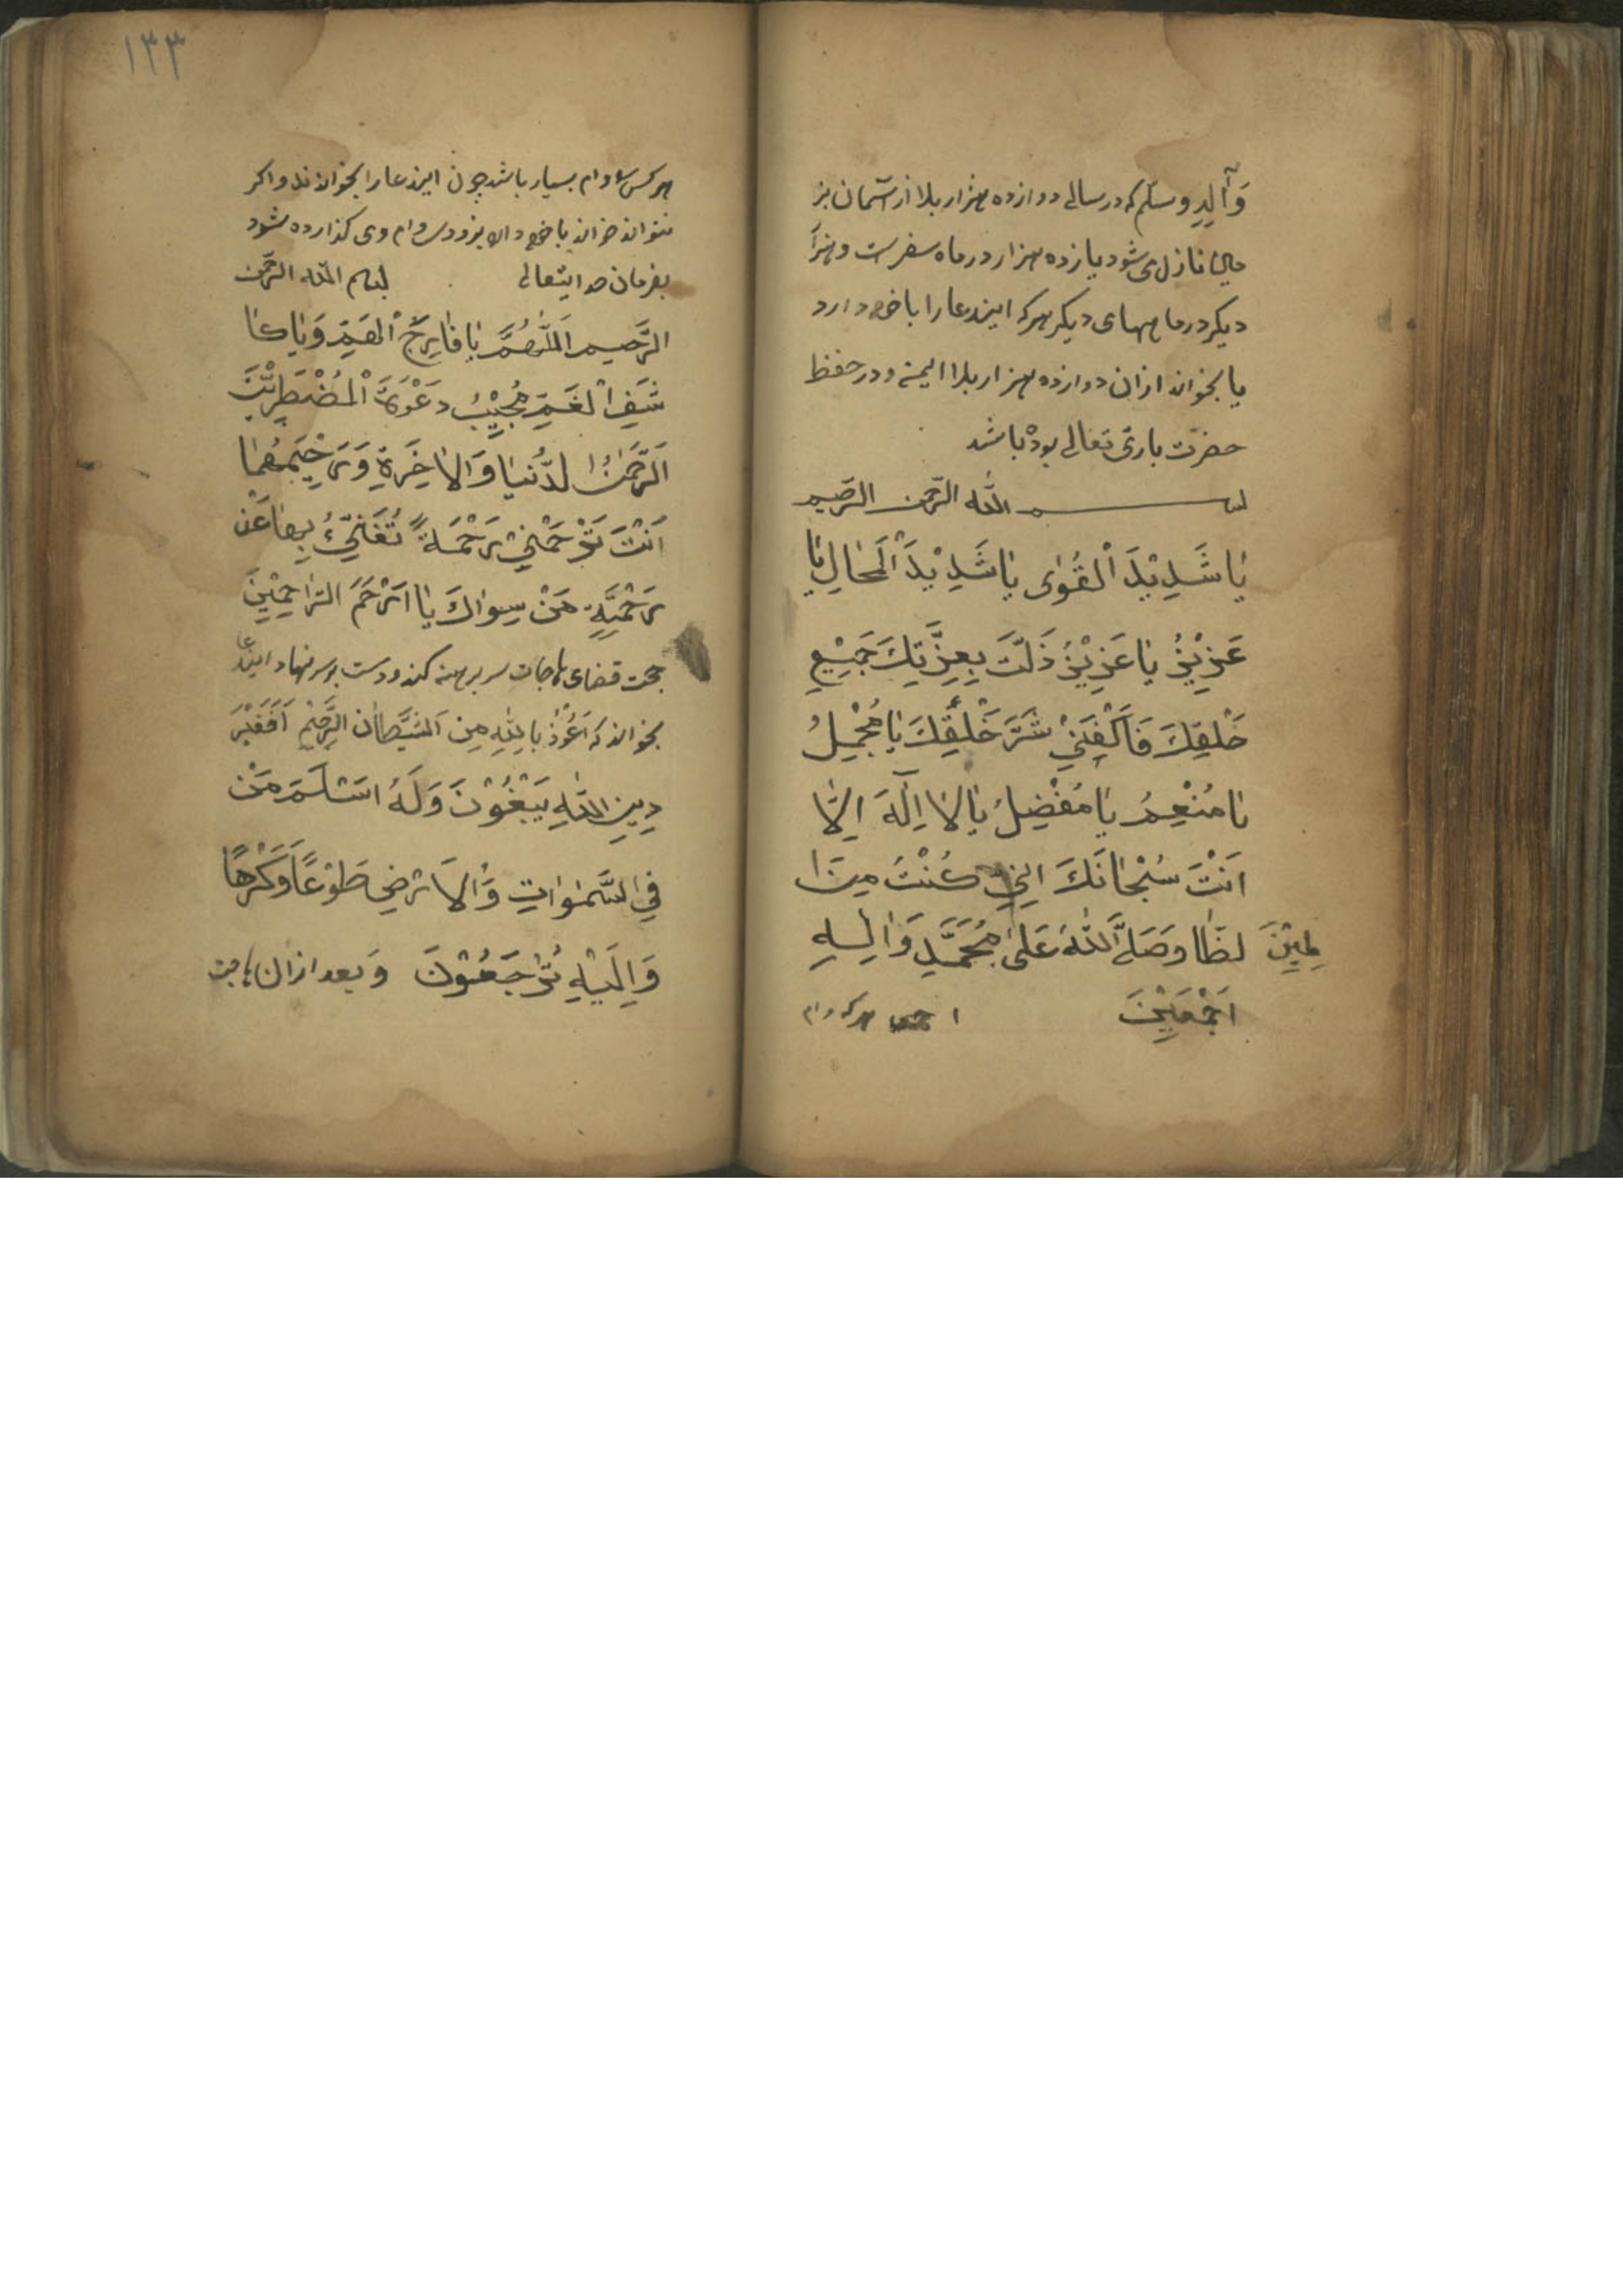 وَآلِهِ وسلم که در سالی دوازده هزار بلا از آسمان بز
نازل می شود یازده هزار در ماه سفرست و هزار
دیکر در ماههای دیکر هرکه ایندعا را با خود دارد
یا بخواند ازان دوازده هزار بلا ایمن و در حفظ
حضرت باری تعالی بود باشد
بسم الله الرحمن الرحیم
یٰا شَدِیْدَ الْقُوٰی یٰا شَدِیْدَ الْمَحٰالِ یٰا
عَزِیْزُ یٰا عَزِیْزُ ذَلَّتْ بِعِزَّتِكَ جَمِیْعِ
خَلْقِكَ فَاَكْفِنِیْ شَرَّ خَلْقِكَ یٰا مُجْمِلُ
یٰا مُنْعِمُ یٰا مُفْضِلُ یٰا لاٰ اِلٰهَ اِلّٰا
اَنْتَ سُبْحٰانَكَ اِنِّیْ كُنْتُ مِنَ ا
لظّٰا لِمِیْنَ وَصَلَّ اللهُ عَلیٰ مُحَمَّدٍ وَاٰلِهِ
اَجْمَعِیْنَ
١٣٣
هرکس را وام بسیار باشد چون ایندعا را بخواند واکر
نتواند خواند با خود دارد بزودی وام وی کذارده شود
بفرمان خدایتعالی بسم الله الرحمن
الرَّحیم اَللّٰهُمَّ یٰا فٰارِجَ الْهَمِّ وَیٰا كٰا
شِفَ الْغَمِّ مُجِیْبُ دَعْوَةَ الْمُضْطَرِیْنَ
اَلرَّحْمٰنُ الدُّنْیٰا وَالاٰخِرَةِ وَرَحِیْمَهُمٰا
اَنْتَ تَرْحَمْنِیْ رَحْمَةً تُغْنِیُ بِهٰا عَنْ
رَحْمَةِ مَنْ سِوٰاكَ یٰا اَرْحَمَ الرّٰاحِمِیْنَ
جهت قضای حاجات سر برهنه کند ودست بر سر نهاد ایندعا
بخواند که اَعُوْذُ بِاللّٰهِ مِنَ الشَّیْطٰانِ الرَّجِیْمِ اَفَغَیْرَ
دِیْنِ اللهِ یَبْغُوْنَ وَلَهُ اَسْلَمَ مَنْ
فِی السَّمٰوٰاتِ وَالْاَرْضِ طَوْعًا وَكَرْهًا
وَاِلَیْهِ تُرْجَعُوْنَ وَبعد ازان حاجت